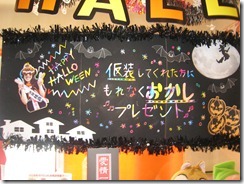 HAPPY
HALLO
WEEN
仮装してくれた方に
もれなくおかし
プレゼント♪
愛情